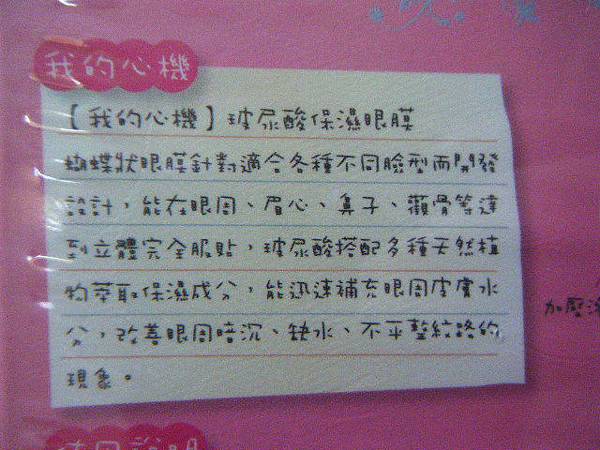 我的心機
【我的心機】玻尿酸保濕眼膜
蝴蝶狀眼膜針對適合各種不同臉型而開發
設計，能在眼周、眉心、鼻子、顴骨等達
到立體完全服貼，玻尿酸搭配多種天然植
物萃取保濕成分，能迅速補充眼周皮膚水
分，改善眼周暗沉、缺水、不平整紋路的
現象。
加壓
使用說明